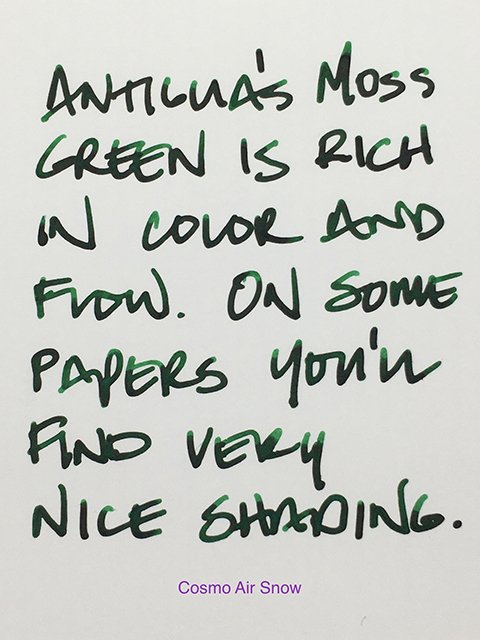 ANTIGUA'S MOSS
GREEN IS RICH
IN COLOR AND
FLOW. ON SOME
PAPERS YOU'LL
FIND VERY
NICE SHADING.
Cosmo Air Snow